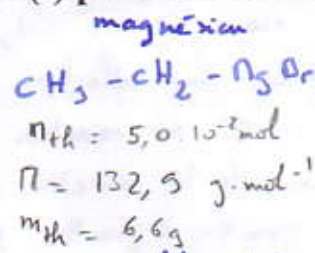 magnésien
CH3 - CH2 - Mg Br
nth = 5,0 10⁻² mol
M = 132,9 g.mol⁻¹
mth = 6,6g